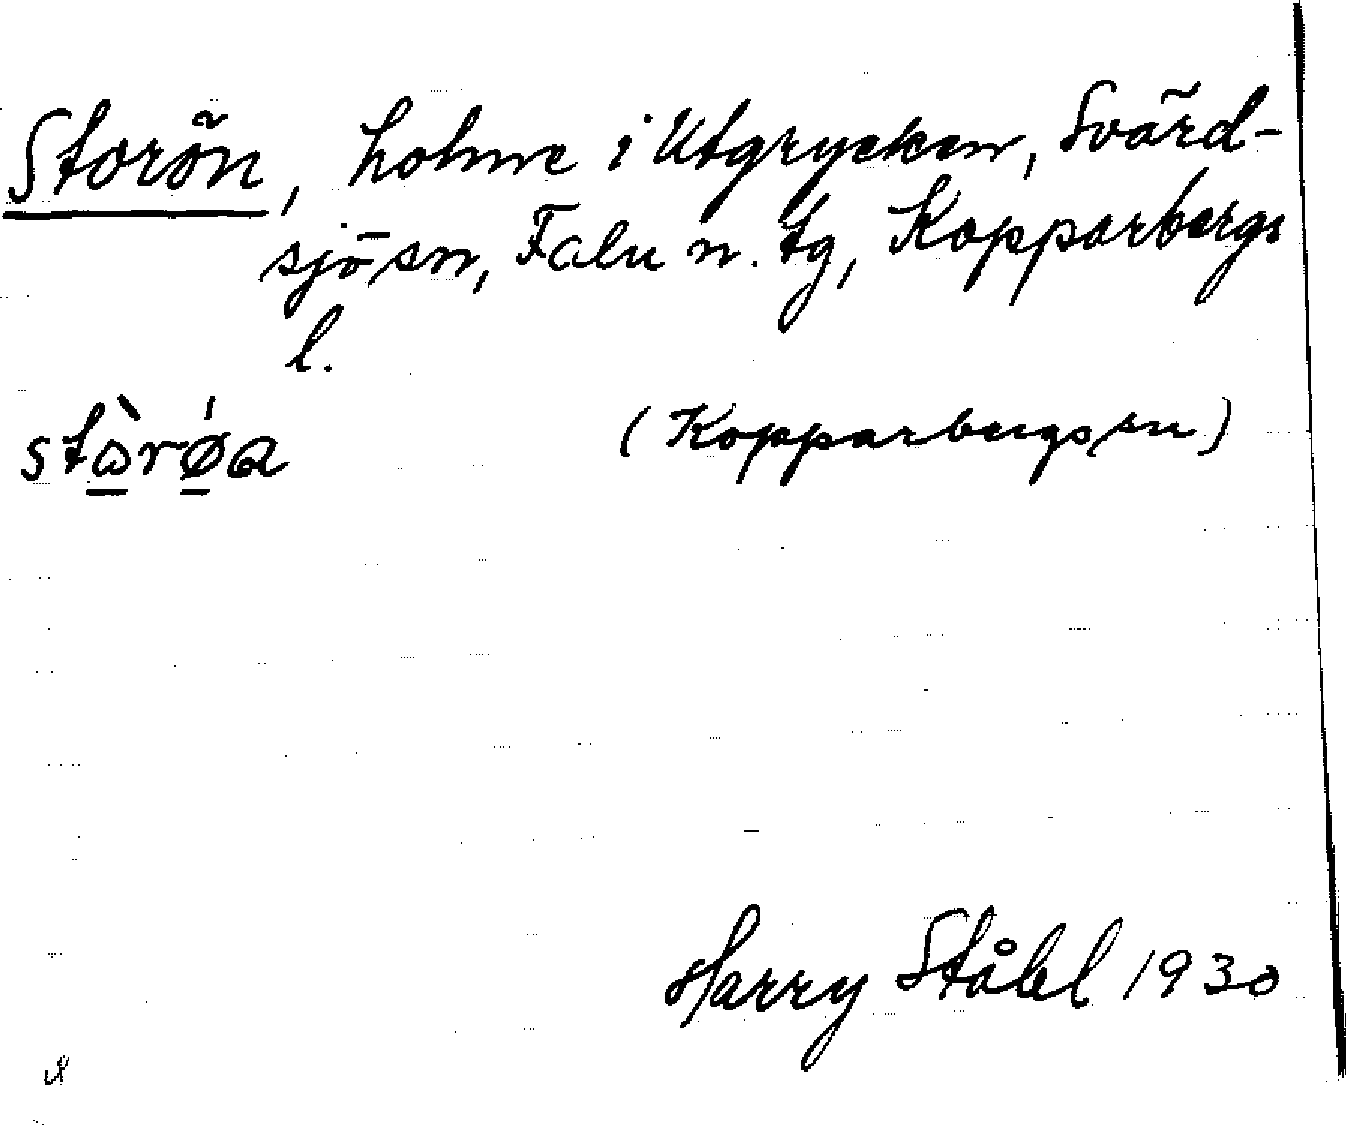 Storön, holme i Utgrycken, Svärd-
sjö sn, Falu n. tg, Kopparbergs
l.
stὼrǿa (Kopparbergs sn)
Harry Ståhl 1930